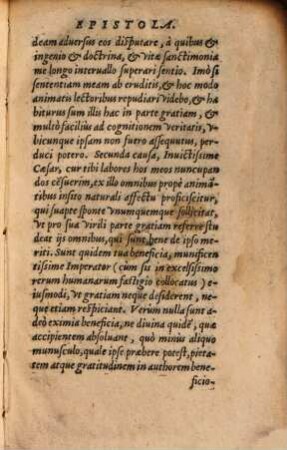 EPISTOLA.
deam adversus eos disputare, à quibus &
ingenio & doctrina, & vitæ sanctimonia
me longo intervallo superari sentio. Imò si
sententiam meam ab eruditis, & hoc modo
animatis lectoribus repudiari videbo, & ha
biturus sum illu hac in parte gratiam, &
multò facilius ad cognitionem veritatis, v-
bicunque ipsam non fuero assequutus, per-
duci potero. Secunda causa, Invictissime
Cæsar, cur tibi labores hos meos nuncupan
dos cēsuerim, ex illo omnibus propè animā-
tibus insito naturali affectu proficiscitur,
qui suapte sponte vnumquemque sollicitat,
vt pro sua virili parte gratiam referre stu
deat ijs omnibus, qui sunt bene de ipso me-
riti. Sunt quidem tua beneficia, munificen
tissime Imperator (cùm sis in excelsissimo
rerum humanarum fastigio collocatus) e-
iusmodi, vt gratiam neque desiderent, ne-
que etiam respiciant. Verùm nulla sunt a-
deò eximia beneficia, ne diuina quidē, quæ
accipientem absoluant, quò minùs aliquo
munusculo, quale ipse præbere potest, pieta-
tem atque gratitudinem in authorem bene-
ficio-